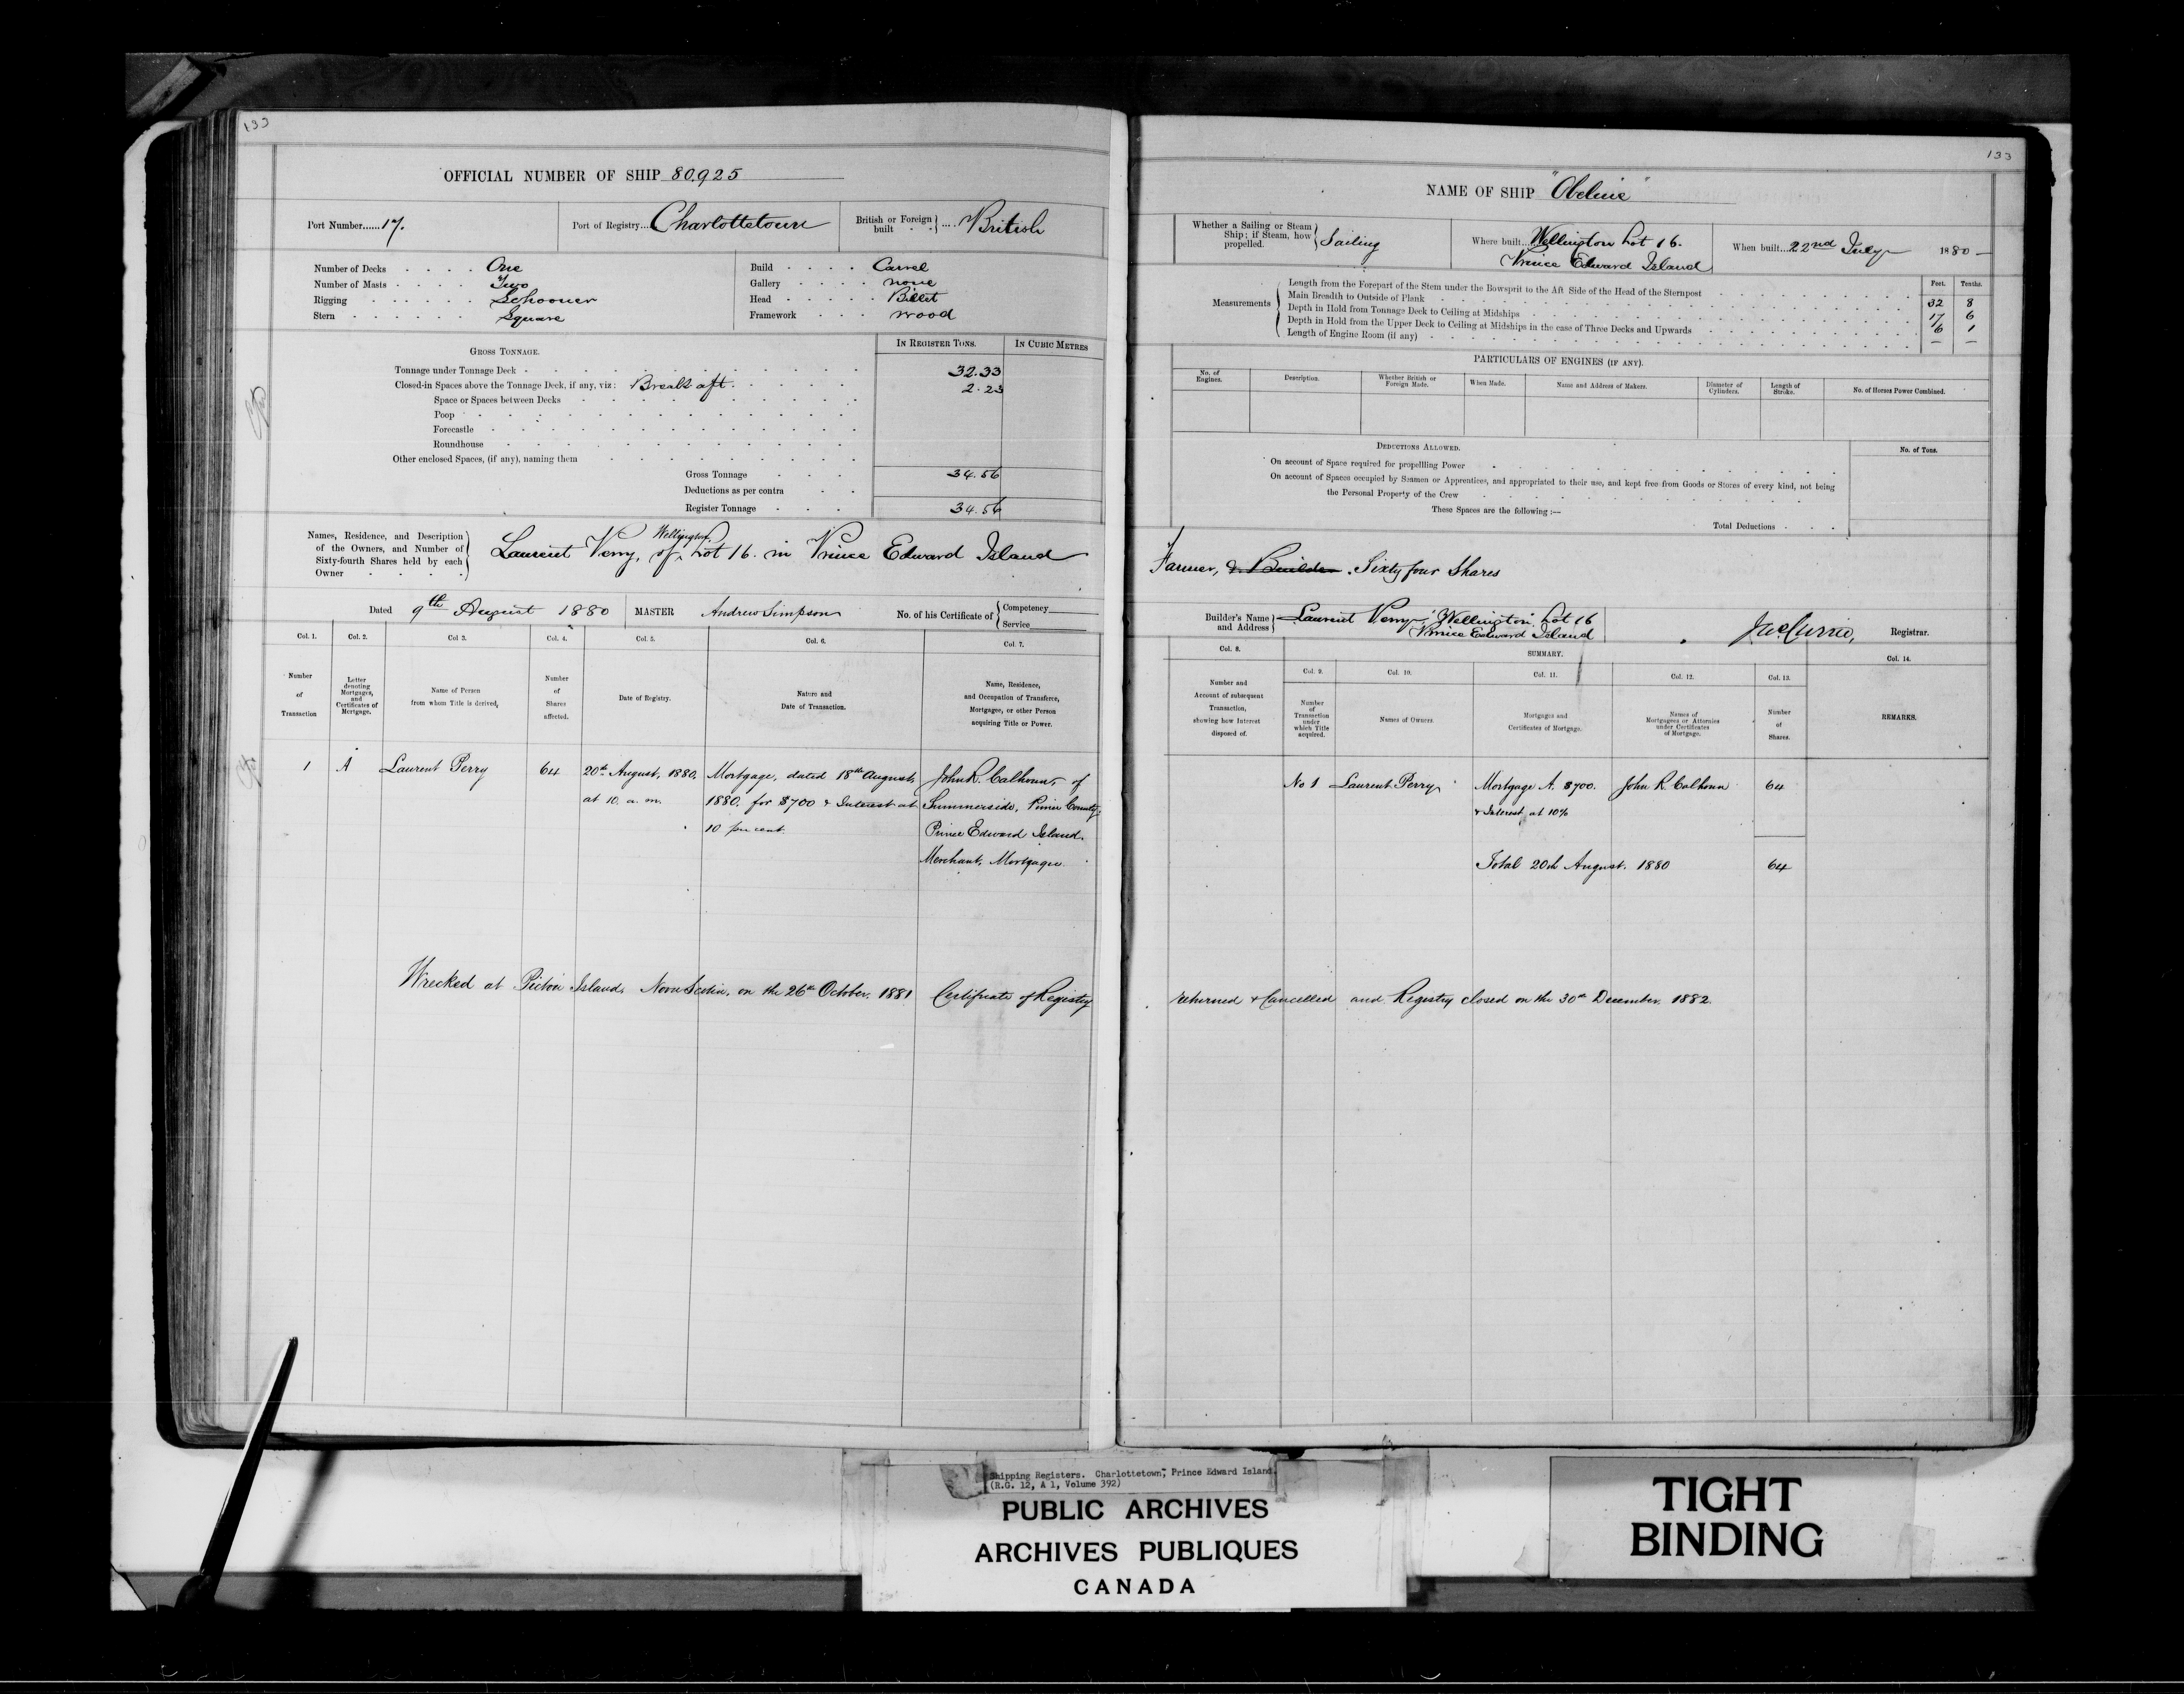 133
OFFICIAL NUMBER OF SHIP 80.925
Port Number......17.
Port of Registry... Charlottetown
British or Foreign built .... British
Number of Decks . . . . One
Number of Masts . . . . Two
Rigging . . . . . . Schooner
Stern . . . . . . Square
Build . . . . Carvel
Gallery . . . . none
Head . . . . . Billet
Framework . . . wood
GROSS TONNAGE.
IN REGISTER TONS.
IN CUBIC METRES
Tonnage under Tonnage Deck 32.33
Closed-in Spaces above the Tonnage Deck, if any, viz: Break aft. 2.23
Space or Spaces between Decks
Poop
Forecastle
Roundhouse
Other enclosed Spaces, (if any), naming them
Gross Tonnage 34.56
Deductions as per contra
Register Tonnage 34.56
Names, Residence, and Description of the Owners, and Number of Sixty-fourth Shares held by each Owner
Wellington
Laurent Perry, of Lot 16. in Prince Edward Island
Dated 9th August 1880
MASTER Andrew Simpson
No. of his Certificate of Competency
Service
Col. 1. Col. 2. Col 3. Col. 4. Col. 5. Col. 6. Col. 7.
Number of Transaction
Letter denoting Mortgages, and Certificates of Mortgage.
Name of Person from whom Title is derived,
Number of Shares affected.
Date of Registry.
Nature and Date of Transaction.
Name, Residence, and Occupation of Transferee, Mortgagee, or other Person acquiring Title or Power.
1 A Laurent Perry 64 20th August, 1880, Mortgage, dated 18th August, John R. Calhoun, of
at 10. a. m. 1880. for $700 & Interest at Summerside, Prince County,
10 per cent. Prince Edward Island.
Merchant, Mortgagee.
Wrecked at Pictou Island, Nova Scotia, on the 26th October, 1881 Certificate of Registry
133
NAME OF SHIP "Obeline"
Whether a Sailing or Steam Ship; if Steam, how propelled. Sailing
Where built... Wellington Lot 16.
Prince Edward Island
When built... 22nd July 1880
Measurements
Feet. Tenths.
Length from the Forepart of the Stem under the Bowsprit to the Aft Side of the Head of the Sternpost 32 8
Main Breadth to Outside of Plank 17 6
Depth in Hold from Tonnage Deck to Ceiling at Midships 6 1
Depth in Hold from the Upper Deck to Ceiling at Midships in the case of Three Decks and Upwards
Length of Engine Room (if any)
PARTICULARS OF ENGINES (IF ANY).
No. of Engines.
Description.
Whether British or Foreign Made.
When Made.
Name and Address of Makers.
Diameter of Cylinders.
Length of Stroke.
No. of Horses Power Combined.
DEDUCTIONS ALLOWED.
No. of Tons.
On account of Space required for propellling Power
On account of Spaces occupied by Seamen or Apprentices, and appropriated to their use, and kept free from Goods or Stores of every kind, not being
the Personal Property of the Crew
These Spaces are the following :—
Total Deductions
Farmer, & Builder. Sixty four Shares
Builder's Name and Address Laurent Perry, Wellington, Lot 16
Prince Edward Island
Registrar.
Col. 8.
SUMMARY.
Col. 14.
Col. 9. Col. 10. Col. 11. Col. 12. Col. 13.
Number and Account of subsequent Transaction, showing how Interest disposed of.
Number of Transaction under which Title acquired.
Names of Owners.
Mortgages and Certificates of Mortgage.
Names of Mortgagees or Attornies under Certificates of Mortgage.
Number of Shares.
REMARKS.
No 1 Laurent Perry Mortgage A. $700. John R Calhoun 64
& Interest at 10%
Total 20th August. 1880 64
returned & Cancelled and Registry closed on the 30th December. 1882.
Shipping Registers. Charlottetown, Prince Edward Island.
(R.G. 12, A 1, Volume 392)
PUBLIC ARCHIVES
ARCHIVES PUBLIQUES
CANADA
TIGHT
BINDING